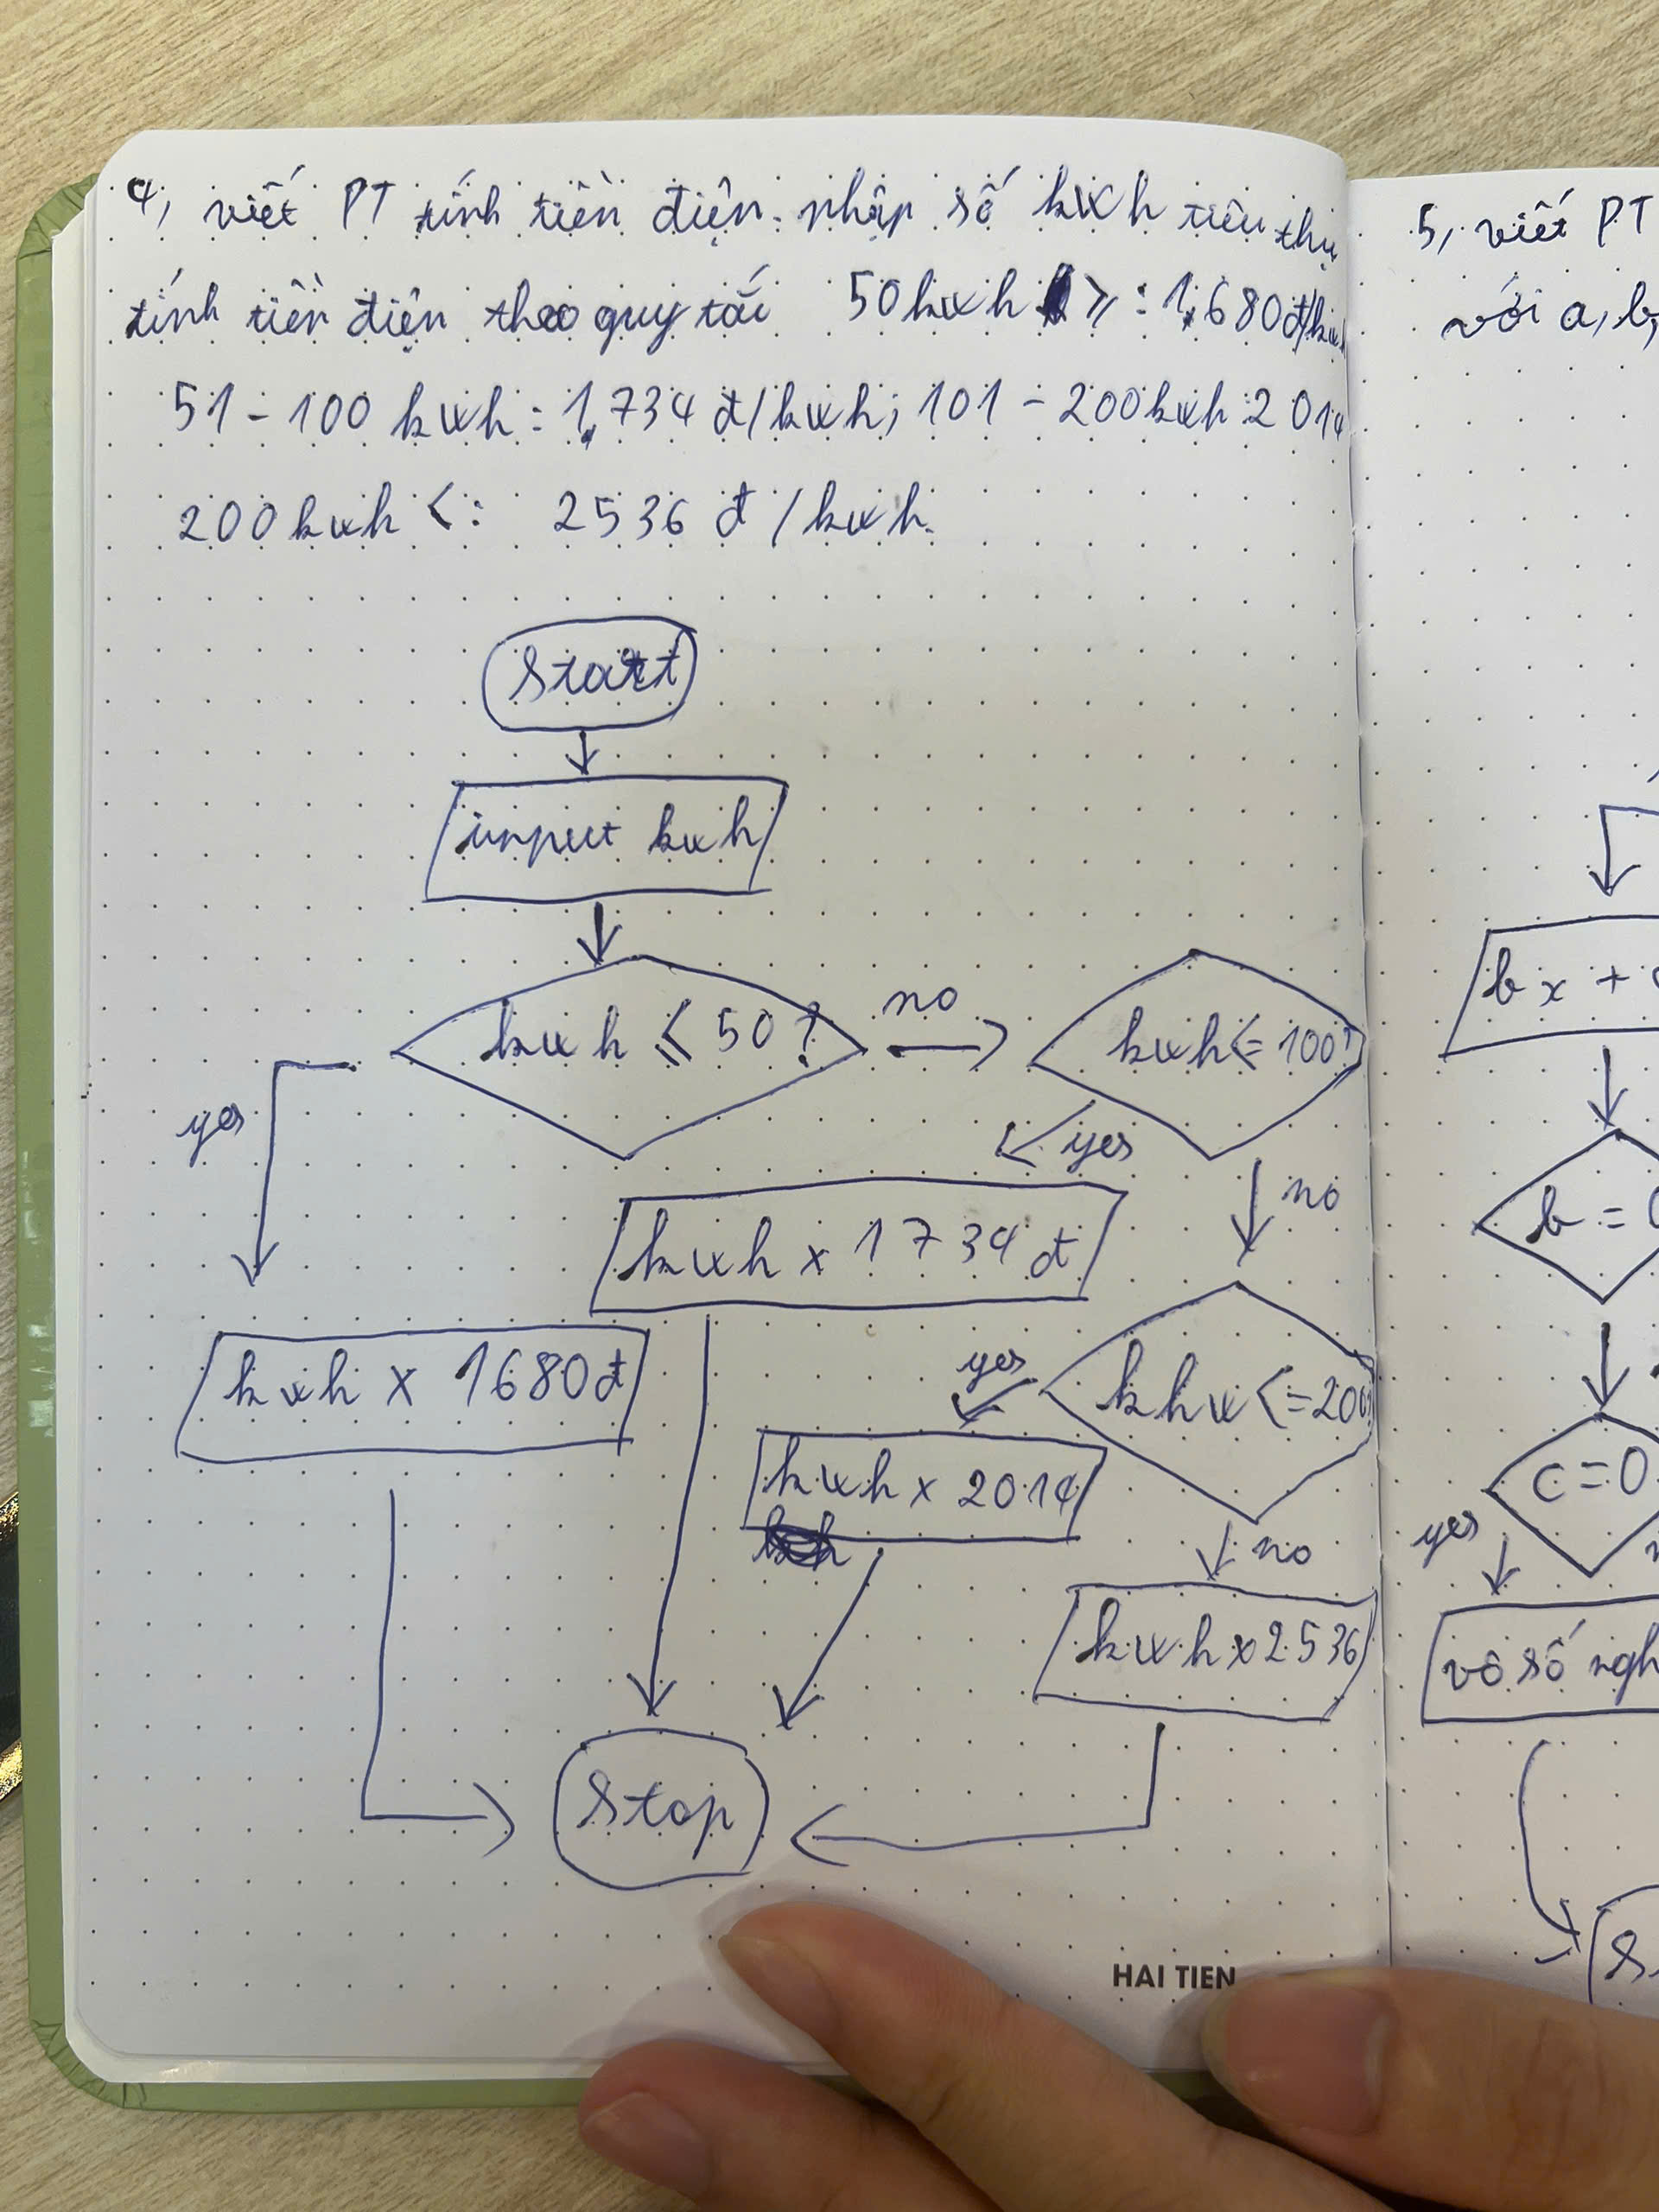 4, viết PT tính tiền điện: nhập số kwh tiêu thụ
tính tiền điện theo quy tắc 50kwh ≥ : 1,680đ/kwh
51 - 100 kwh : 1,734 đ/kwh; 101 - 200kwh : 2014
200kwh <: 2536 đ/kwh.
Start
input kwh
kwh ≤ 50?
no
kwh <= 100?
yes
yes
no
kwh x 1734đ
kwh x 1680đ
yes
khw <= 200?
kwh x 2014
no
kwh x 2536
Stop
HAI TIEN
5, viết PT
với a, b,
bx +
b = 0
c = 0
yes
vô số ngh